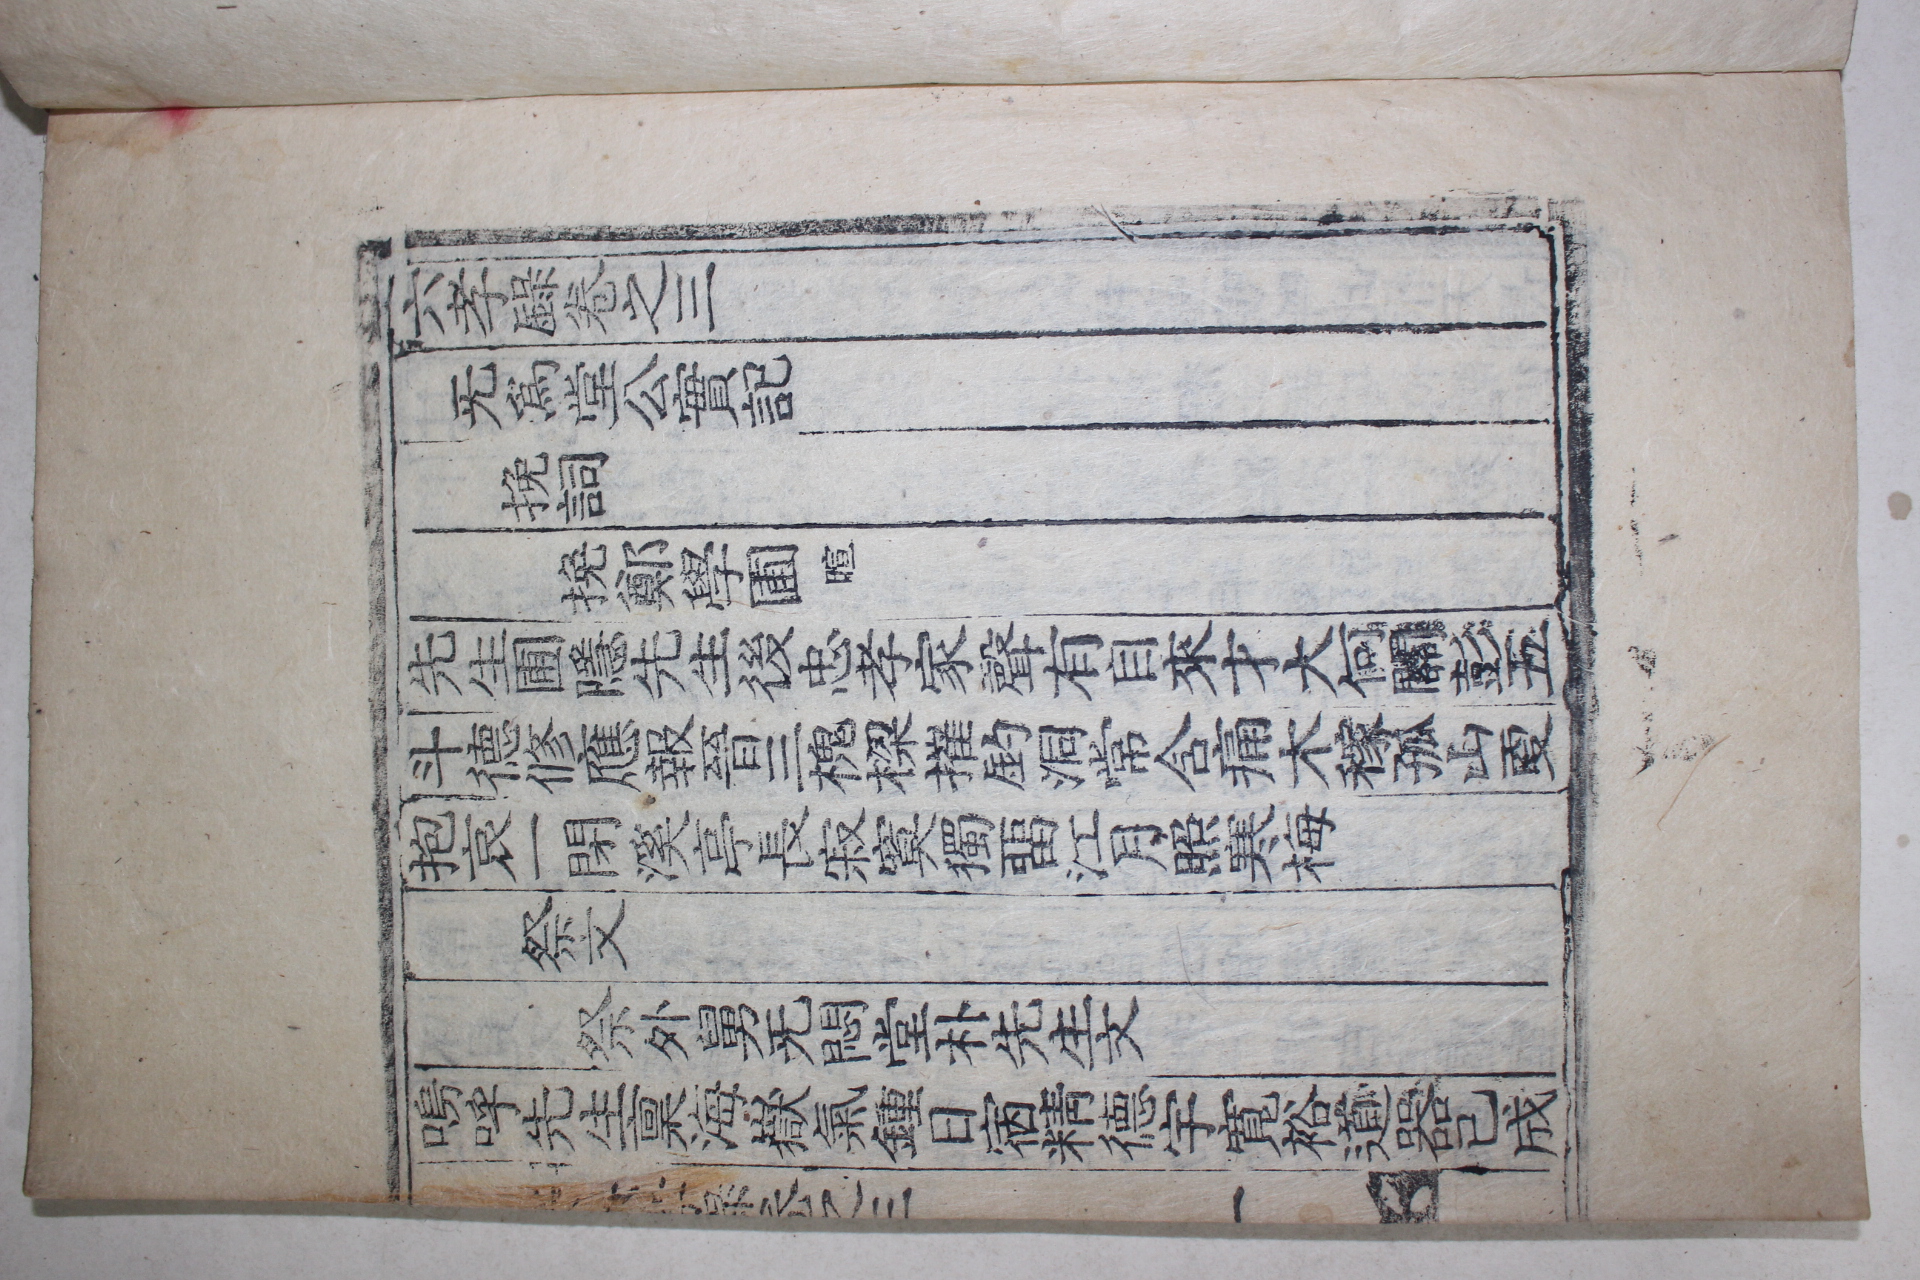 六孝錄卷之三
无爲堂公實記
挽詞
挽鄭學圃 暄
先生圃隱先生後忠孝家聲有自來才大何關彭五
斗德修應報晉三槐樑摧釣洞常含痛木稼孤山更
抱哀一閉溪亭長寂寞獨留江月照寒梅
祭文
祭外舅无悶堂朴先生文
嗚呼先生稟海嶽氣鍾日宿精德宇寬裕道器已成
錄卷之三
一